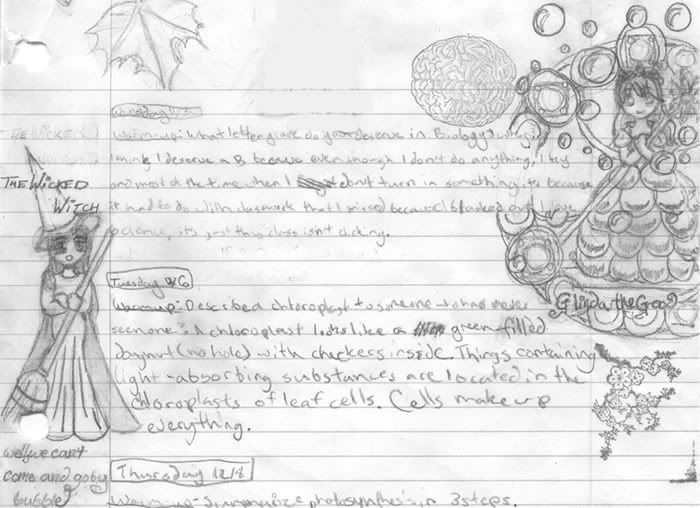 Warm-up: What letter grade do you deserve in Biology? Why?
I think I deserve a B because even though I don't do anything, I try
and most of the time when I don't turn in something, it's because
it had to do with classwork that I missed because I blanked out. I love
science, it's just this class isn't clicking.
THE WICKED
THE WICKED
WITCH
Tuesday
Warm-up: Described chloroplast to someone who has never
seen one. A chloroplast looks like a green-filled
doynut (no hole) with checkers inside. Things containing
light-absorbing substances are located in the
chloroplasts of leaf cells. Cells make up
everything.
Glinda the Good
well, we can't
come and go by
bubble
Thursday 12/8
Warm-up- Summarize photosynthesis in 3 steps.